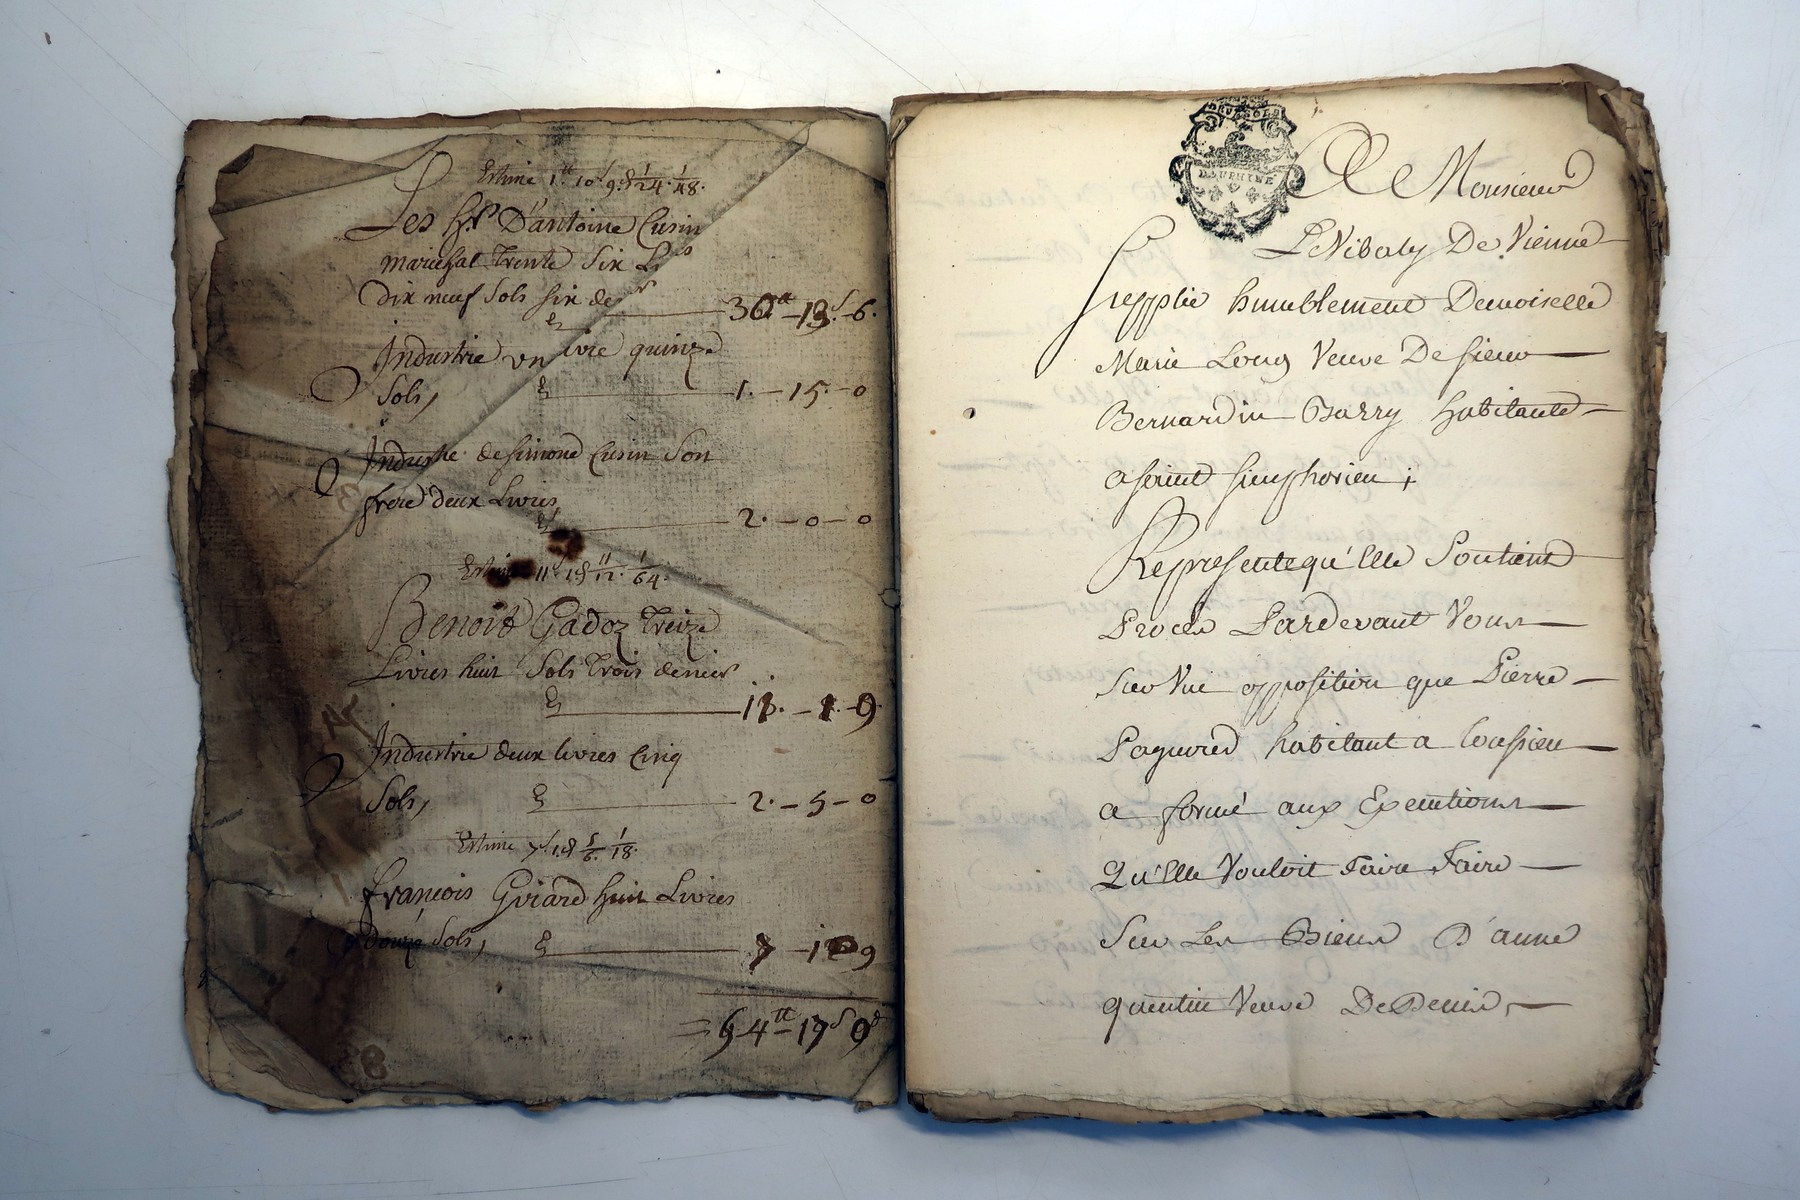 Estime 1tt 10s 9d 1/24. 1/48.
Les hrs D'antoine Cusin
marechal Trente Six L
Dix neuf Sols six de
36tt - 19s - 6.
Industrie un livre quinze
Sols, 1. - 15. - 0
Industrie de simond Cusin Son
frere deux Livres
2. - 0 - 0
Estime 11s 1d 11/12. 1/64.
Benoit Gadoz Treize
Livres huit Sols Trois denier
- 9
Industrie deux livres Cinq
Sols, 2. - 5 - 0
Estime 7s 1d 5/6. 1/18.
françois Guiard huit Livres
douze Sols, 9
= 64tt - 17s 9d
DAUPHINE
A Monsieur
Le Vibaly De Vienne
supplie humblement Demoiselle
Marie Veuve De sieur
Bernardin Barry habitante
a saint simphorien ;
Represente qu'elle Soutient
Procès Pardevant Vous
Sur Une opposition que Pierre
habitant a
a formé aux Executions
Qu'elle Vouloit faire Faire
Sur Les Biens D'anne
quentin Veuve De Denis,